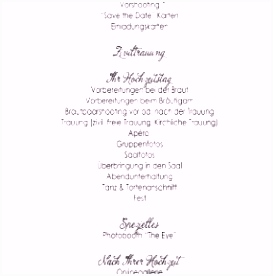 Vorshooting *
"Save the Date" Karten
Einladungskarten
Ziviltrauung
Ihr Hochzeitstag
Vorbereitungen bei der Braut
Vorbereitungen beim Bräutigam
Brautpaarshooting vor od. nach der Trauung
Trauung (zivil, freie Trauung, Kirchliche Trauung)
Apéro
Gruppenfotos
Saalfotos
Überbringung in den Saal
Abendunterhaltung
Tanz & Tortenanschnitt
Fest
Spezielles
Photobooth "The Eye"
Nach Ihrer Hochzeit
Onlinegalerie